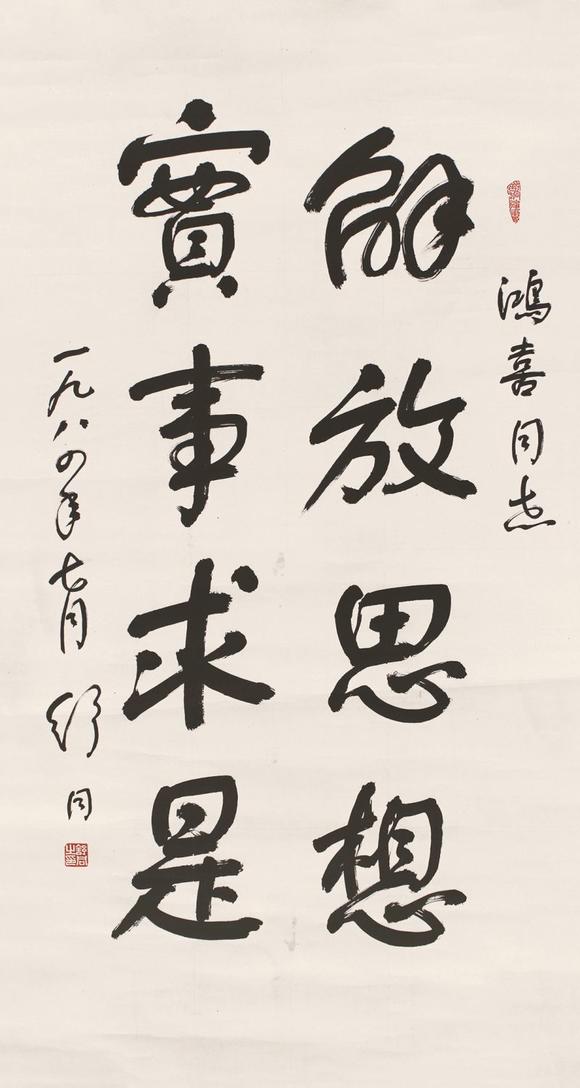 鴻喜同志
解放思想
實事求是
一九八四年七月 舒同
舒同之印